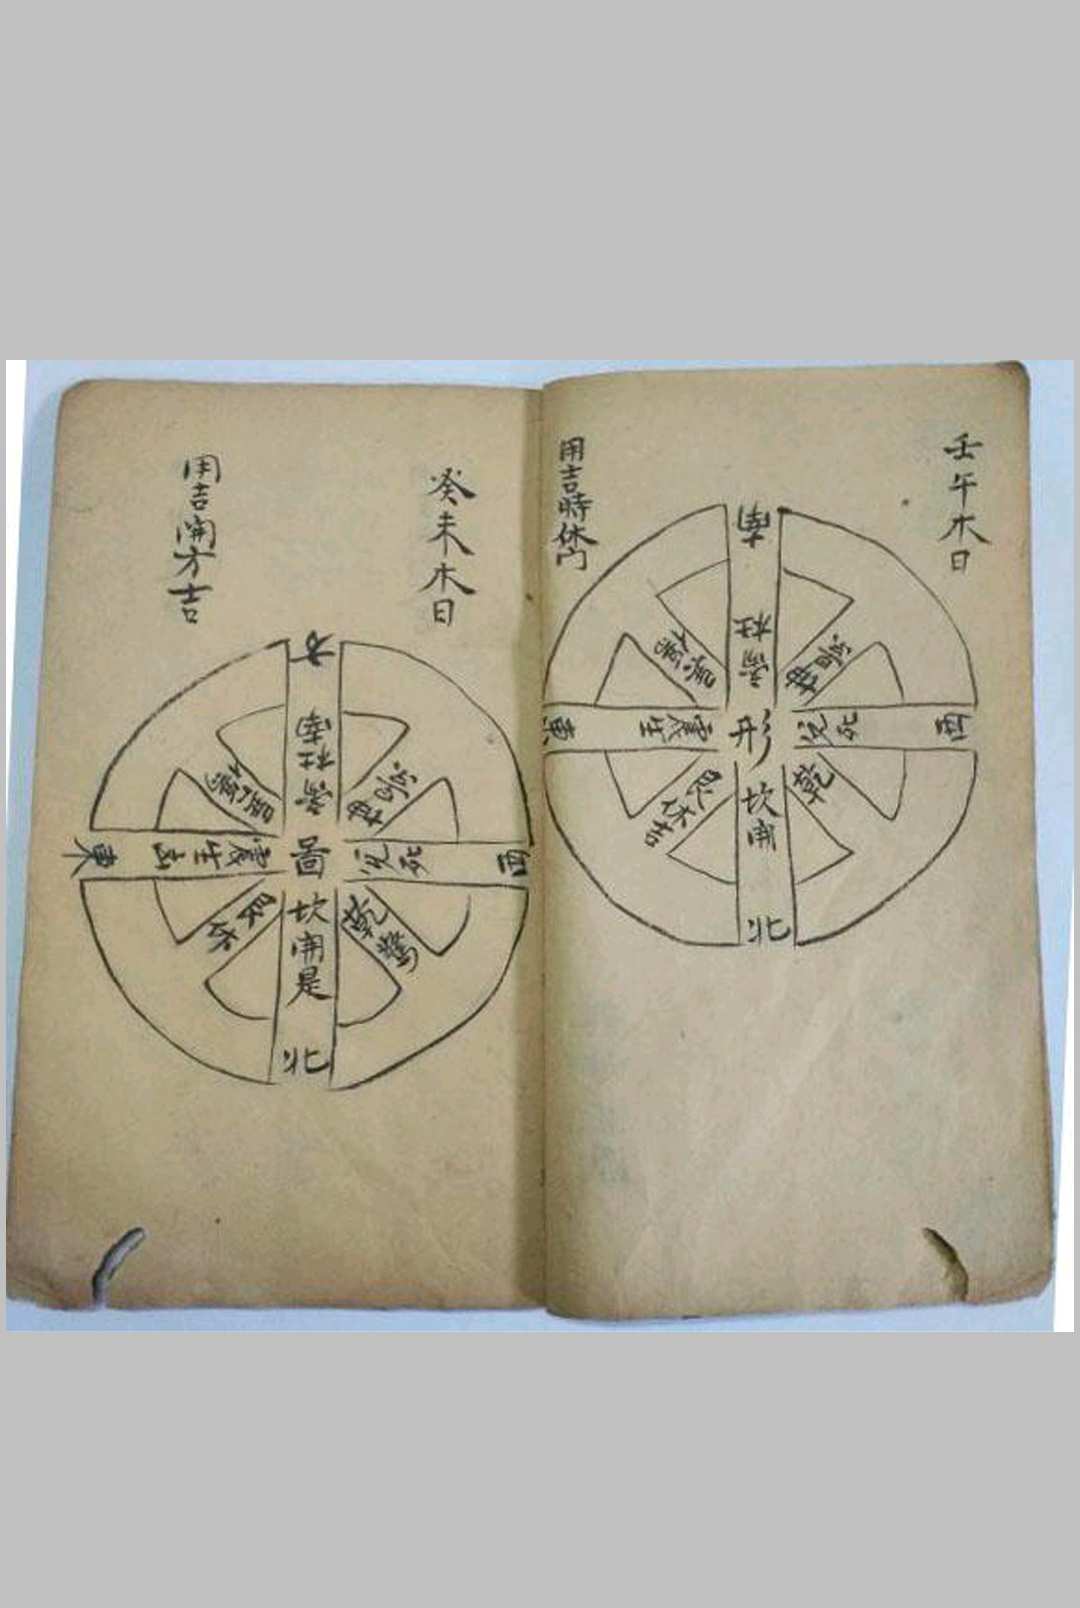 壬午木日
南
杜
坤
西
死兌
形
震生
東
乾
坎開
北
艮休吉
用吉時休门
癸未木日
方
南
杜
坤
西
死兌
圖
震生
東
乾
坎開是
北
艮休
用吉開方吉